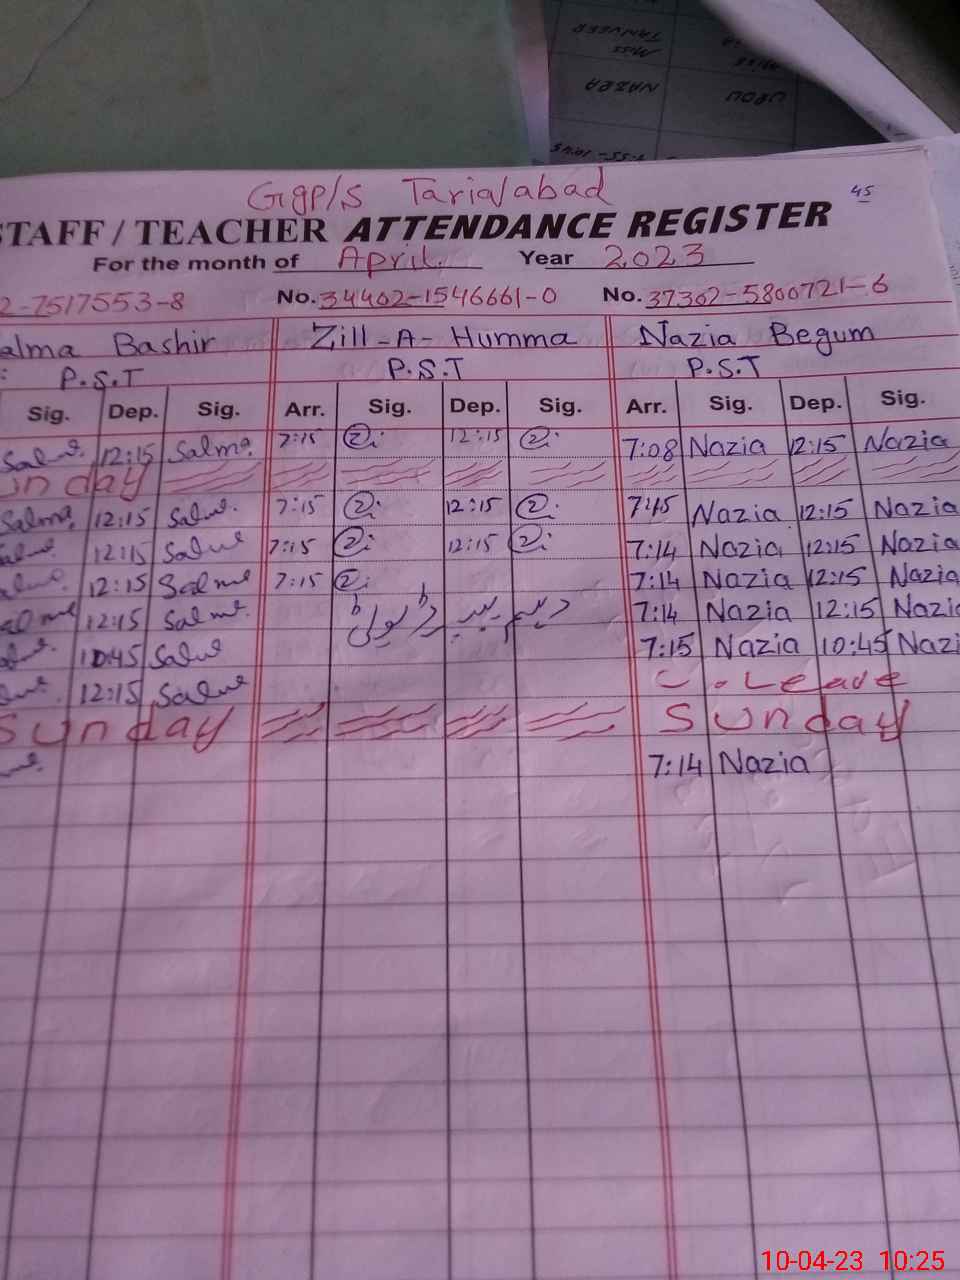 Ggp/s Tarialabad
45
STAFF / TEACHER ATTENDANCE REGISTER
For the month of April. Year 2023
2-7517553-8 No. 34402-1546661-0 No. 37302-5800721-6
alma Bashir Zill-A-Humma Nazia Begum
P.S.T P.S.T P.S.T
Sig. Dep. Sig. Arr. Sig. Dep. Sig. Arr. Sig. Dep. Sig.
12:15 Salma. 7:15 12:15 7:08 Nazia 12:15 Nazia
unday
Salma 12:15 Salme. 7:15 12:15 7:15 Nazia 12:15 Nazia
12:15 Salme 7:15 12:15 7:14 Nazia 12:15 Nazia
12:15 Salme 7:15 7:14 Nazia 12:15 Nazia
alme 12:15 Salme. 7:14 Nazia 12:15 Nazia
10:45 Salme 7:15 Nazia 10:45 Nazi
12:15 Salme C.Leave
Sunday Sunday
7:14 Nazia
TANVEER
MISS
NAZRA
URDU
10-04-23 10:25